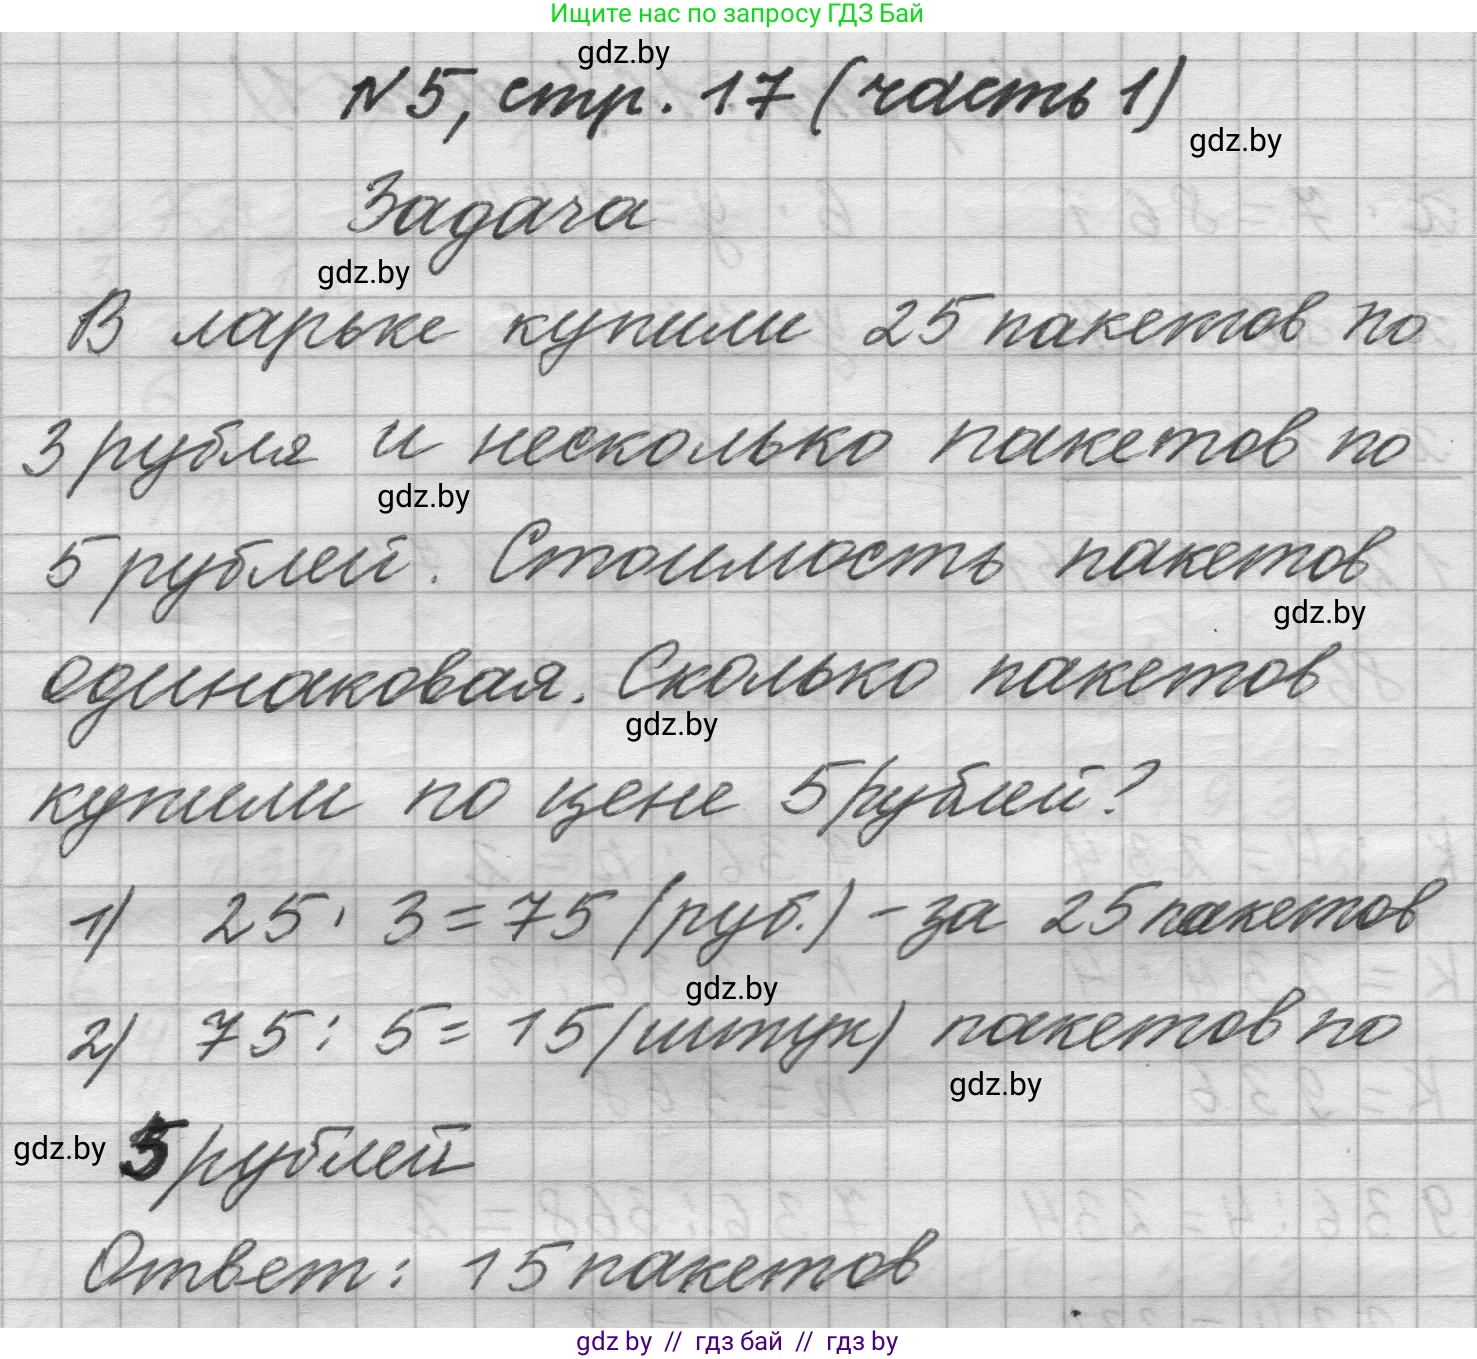 Ищите нас по запросу ГДЗ Бай
gdz.by
№5, стр. 17 (часть 1)
gdz.by
Задача
gdz.by
В ларьке купили 25 пакетов по
3 рубля и несколько пакетов по
gdz.by
5 рублей. Стоимость пакетов
gdz.by
одинаковая. Сколько пакетов
gdz.by
купили по цене 5 рублей?
1) 25 · 3 = 75 (руб.) - за 25 пакетов
gdz.by
2) 75 : 5 = 15 (штук) пакетов по
gdz.by
gdz.by 5 рублей
Ответ: 15 пакетов
gdz by // гдз бай // гдз by